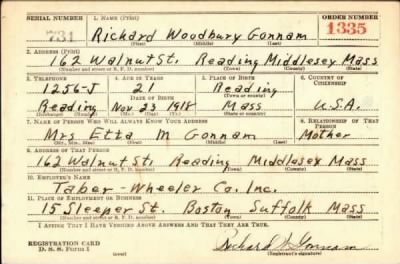 SERIAL NUMBER 1. NAME (Print) ORDER NUMBER
731 Richard Woodbury Gonnam 1335
(First) (Middle) (Last)
2. ADDRESS (Print)
162 Walnut St. Reading Middlesey Mass
(Number and street or R. F. D. number) (Town) (County) (State)
3. TELEPHONE 4. AGE IN YEARS 5. PLACE OF BIRTH 6. COUNTRY OF CITIZENSHIP
1256-J 21 Reading
DATE OF BIRTH (Town or county)
Reading Nov 23 1918 Mass U.S.A.
(Exchange) (Mo.) (Day) (Yr.) (State or country)
7. NAME OF PERSON WHO WILL ALWAYS KNOW YOUR ADDRESS 8. RELATIONSHIP OF THAT PERSON
Mrs Etta M Gonnam Mother
(Mr., Mrs., Miss) (First) (Middle) (Last)
9. ADDRESS OF THAT PERSON
162 Walnut St. Reading Middlesey Mass
(Number and street or R. F. D. number) (Town) (County) (State)
10. EMPLOYER'S NAME
Taber-Wheeler Co. Inc.
11. PLACE OF EMPLOYMENT OR BUSINESS
15 Sleeper St. Boston Suffolk Mass
(Number and street or R. F. D. number) (Town) (County) (State)
I AFFIRM THAT I HAVE VERIFIED ABOVE ANSWERS AND THAT THEY ARE TRUE.
REGISTRATION CARD
D. S. S. Form 1 (over) Richard W Gonnam
(Registrant's signature)